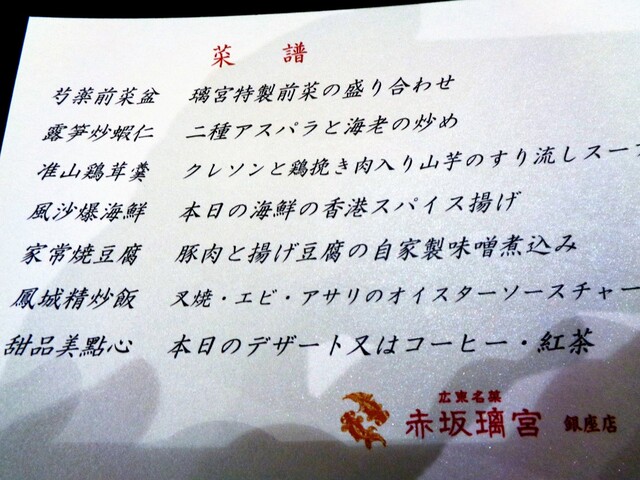 菜譜
芍薬前菜盆 璃宮特製前菜の盛り合わせ
露笋炒蝦仁 二種アスパラと海老の炒め
准山鶏茸羹 クレソンと鶏挽き肉入り山芋のすり流しスー
風沙爆海鮮 本日の海鮮の香港スパイス揚げ
家常焼豆腐 豚肉と揚げ豆腐の自家製味噌煮込み
鳳城精炒飯 叉焼・エビ・アサリのオイスターソースチャー
甜品美點心 本日のデザート又はコーヒー・紅茶
広東名菜
赤坂璃宮 銀座店